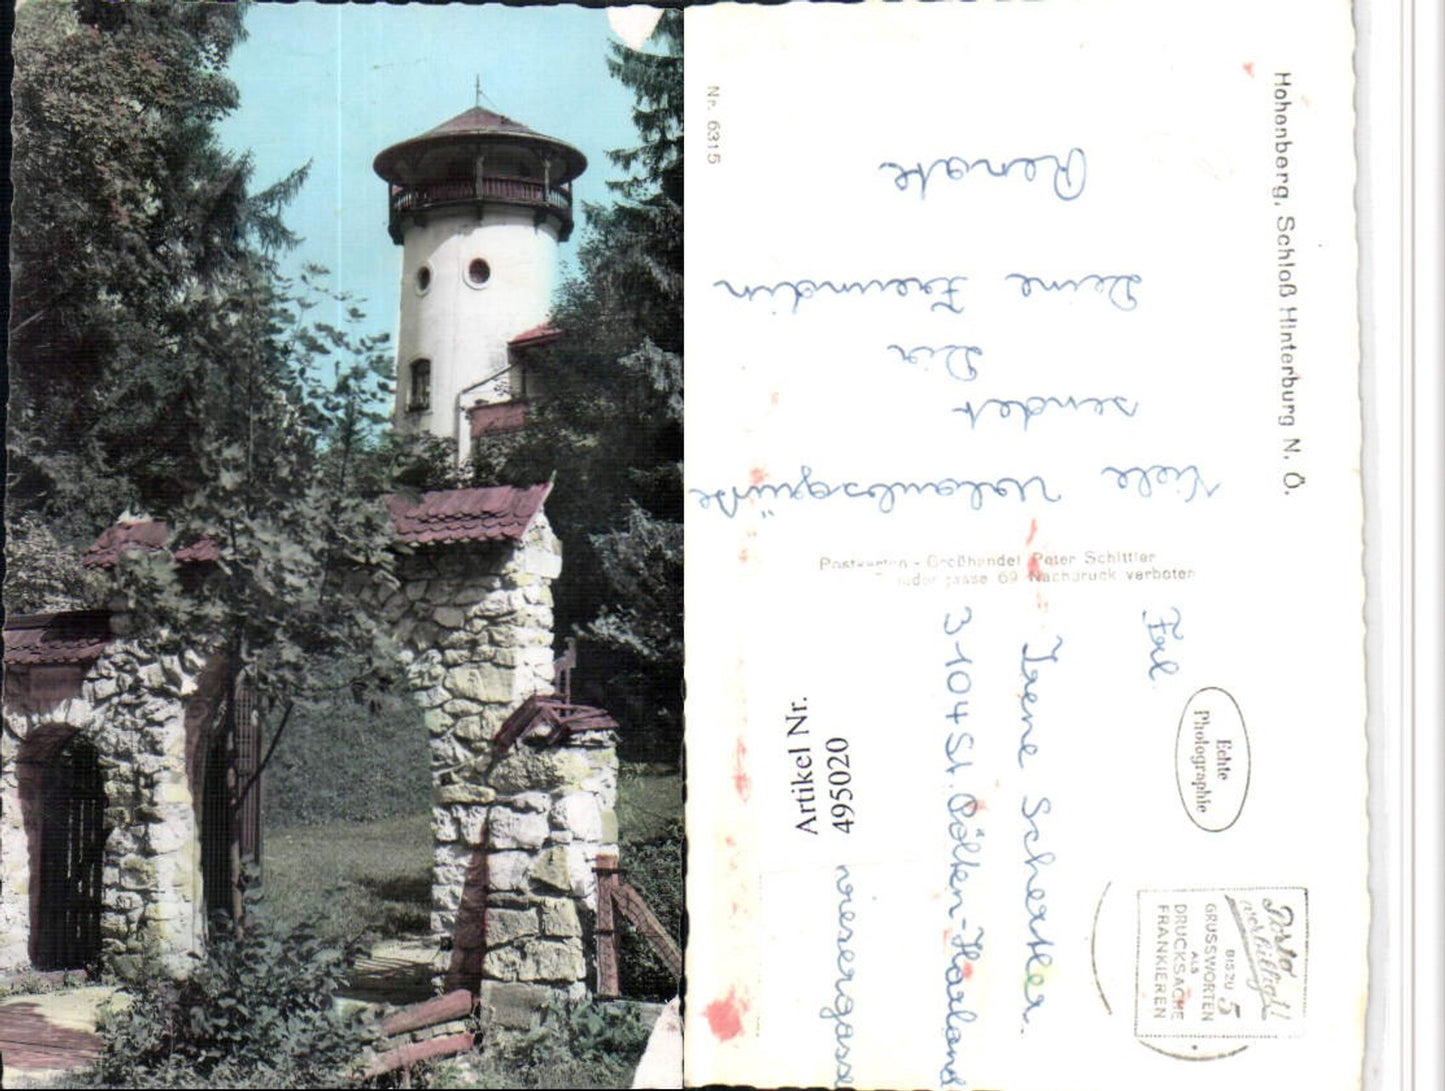 Hohenberg, Schloß Hinterburg N. Ö.
Nr. 6315
Viele Urlaubsgrüße
sendet
Dir
Deine Freundin
Renate
Postkarten - Großhandel Peter Schittler
gasse 69 Nachdruck verboten
Frl.
Irene Schertler.
3104 St. Pölten-Harland
wiesergasse
Echte
Photographie
Porto
verbilligt!
BIS ZU 5
GRUSSWORTEN
ALS
DRUCKSACHE
FRANKIEREN
Artikel Nr.
495020